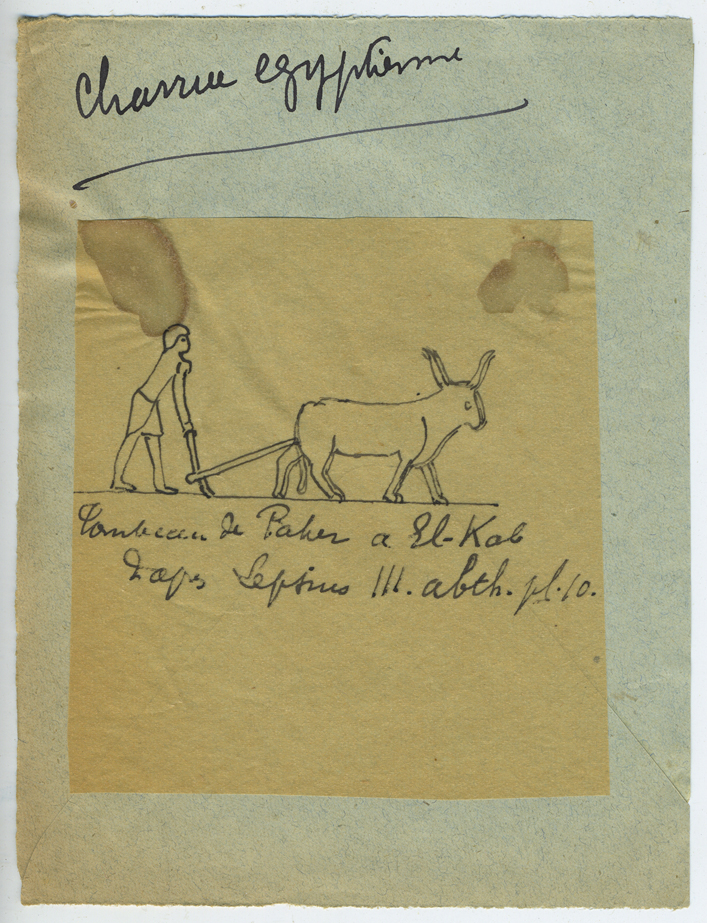 Charrue egyptienne
Tombeau de Paher a El-Kab
D'aps Lepsius III. abth. pl. 10.